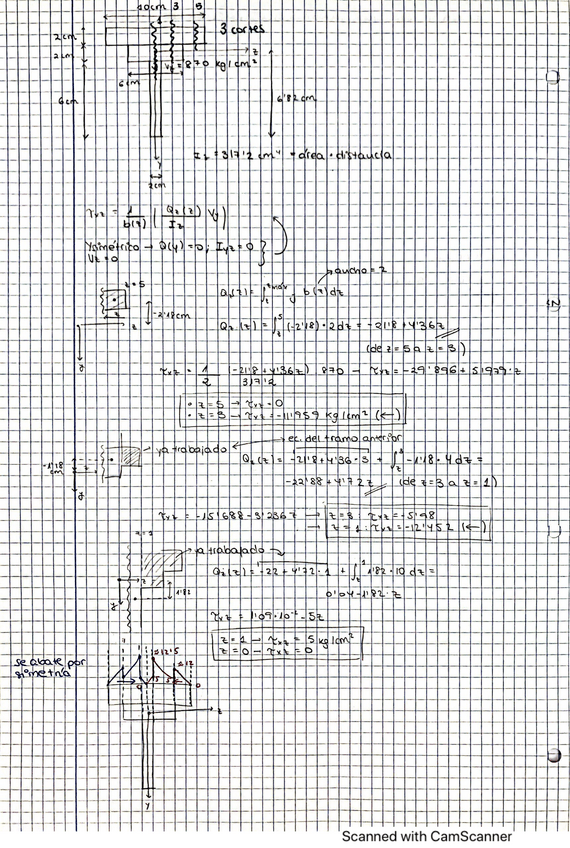 10cm 3 5
3 cortes
2cm
2cm
z
Vy = 870 kg/cm²
6cm
6cm
6'82cm
y
2cm
Iz = 317'2 cm⁴ → área · distancia
τxz = 1/b(z) ( Qz(z)/Iz Vy )
Ysimétrico → Q(y) = 0 ; Iyz = 0
Vz = 0
z=5
-2'18cm
z
ancho = 2
Qz(z) = ∫ y b(z) dz
Qz(z) = ∫ (-2'18) · 2 dz = -21'8 + 4'36z
(de z = 5 a z = 3)
τxz = 1/2 (-21'8 + 4'36z)/317'2 870 → τxz = -29'896 + 5'979·z
• z = 5 → τxz = 0
• z = 3 → τxz = -11'959 kg/cm² (←)
ya trabajado
ec. del tramo anterior
-1'18cm
Qz(z) = -21'8 + 4'36·3 + ∫ -1'18 · 4 dz =
-22'88 + 4'72z (de z = 3 a z = 1)
τxz = -15'688 - 3'236z → z = 3 : τxz = -5'98
→ z = 1 : τxz = -12'452 (←)
ya trabajado
Qz(z) = -22 + 4'72 · 1 + ∫ 1'82 · 10 dz =
1'82
0'04 - 1'82 · z
τxz = 1'09·10⁻² - 5z
z = 1 → τxz = 5 kg/cm²
z = 0 → τxz = 0
se abate por
simetría
≤12'5
≤12
z
y
Scanned with CamScanner